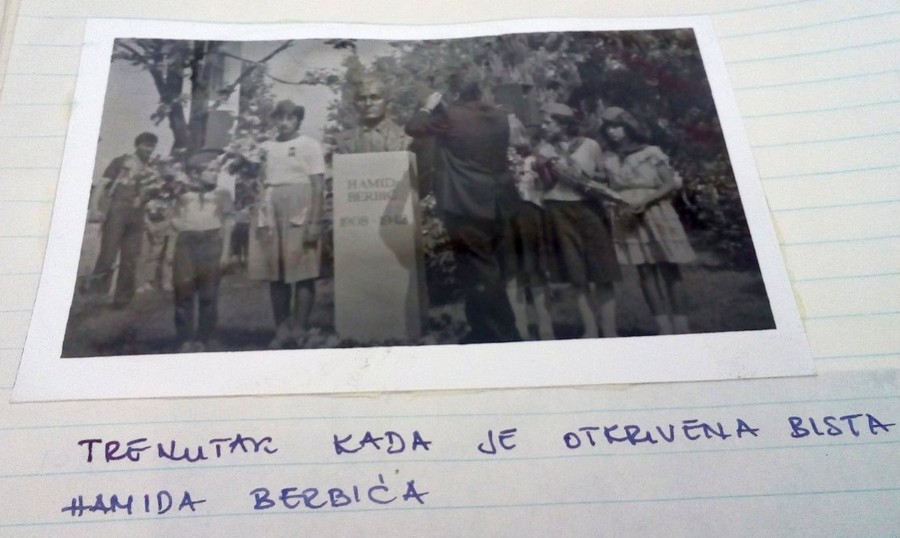 HAMID
BERBIĆ
1908 - 1942
TRENUTAK KADA JE OTKRIVENA BISTA
HAMIDA BERBIĆA